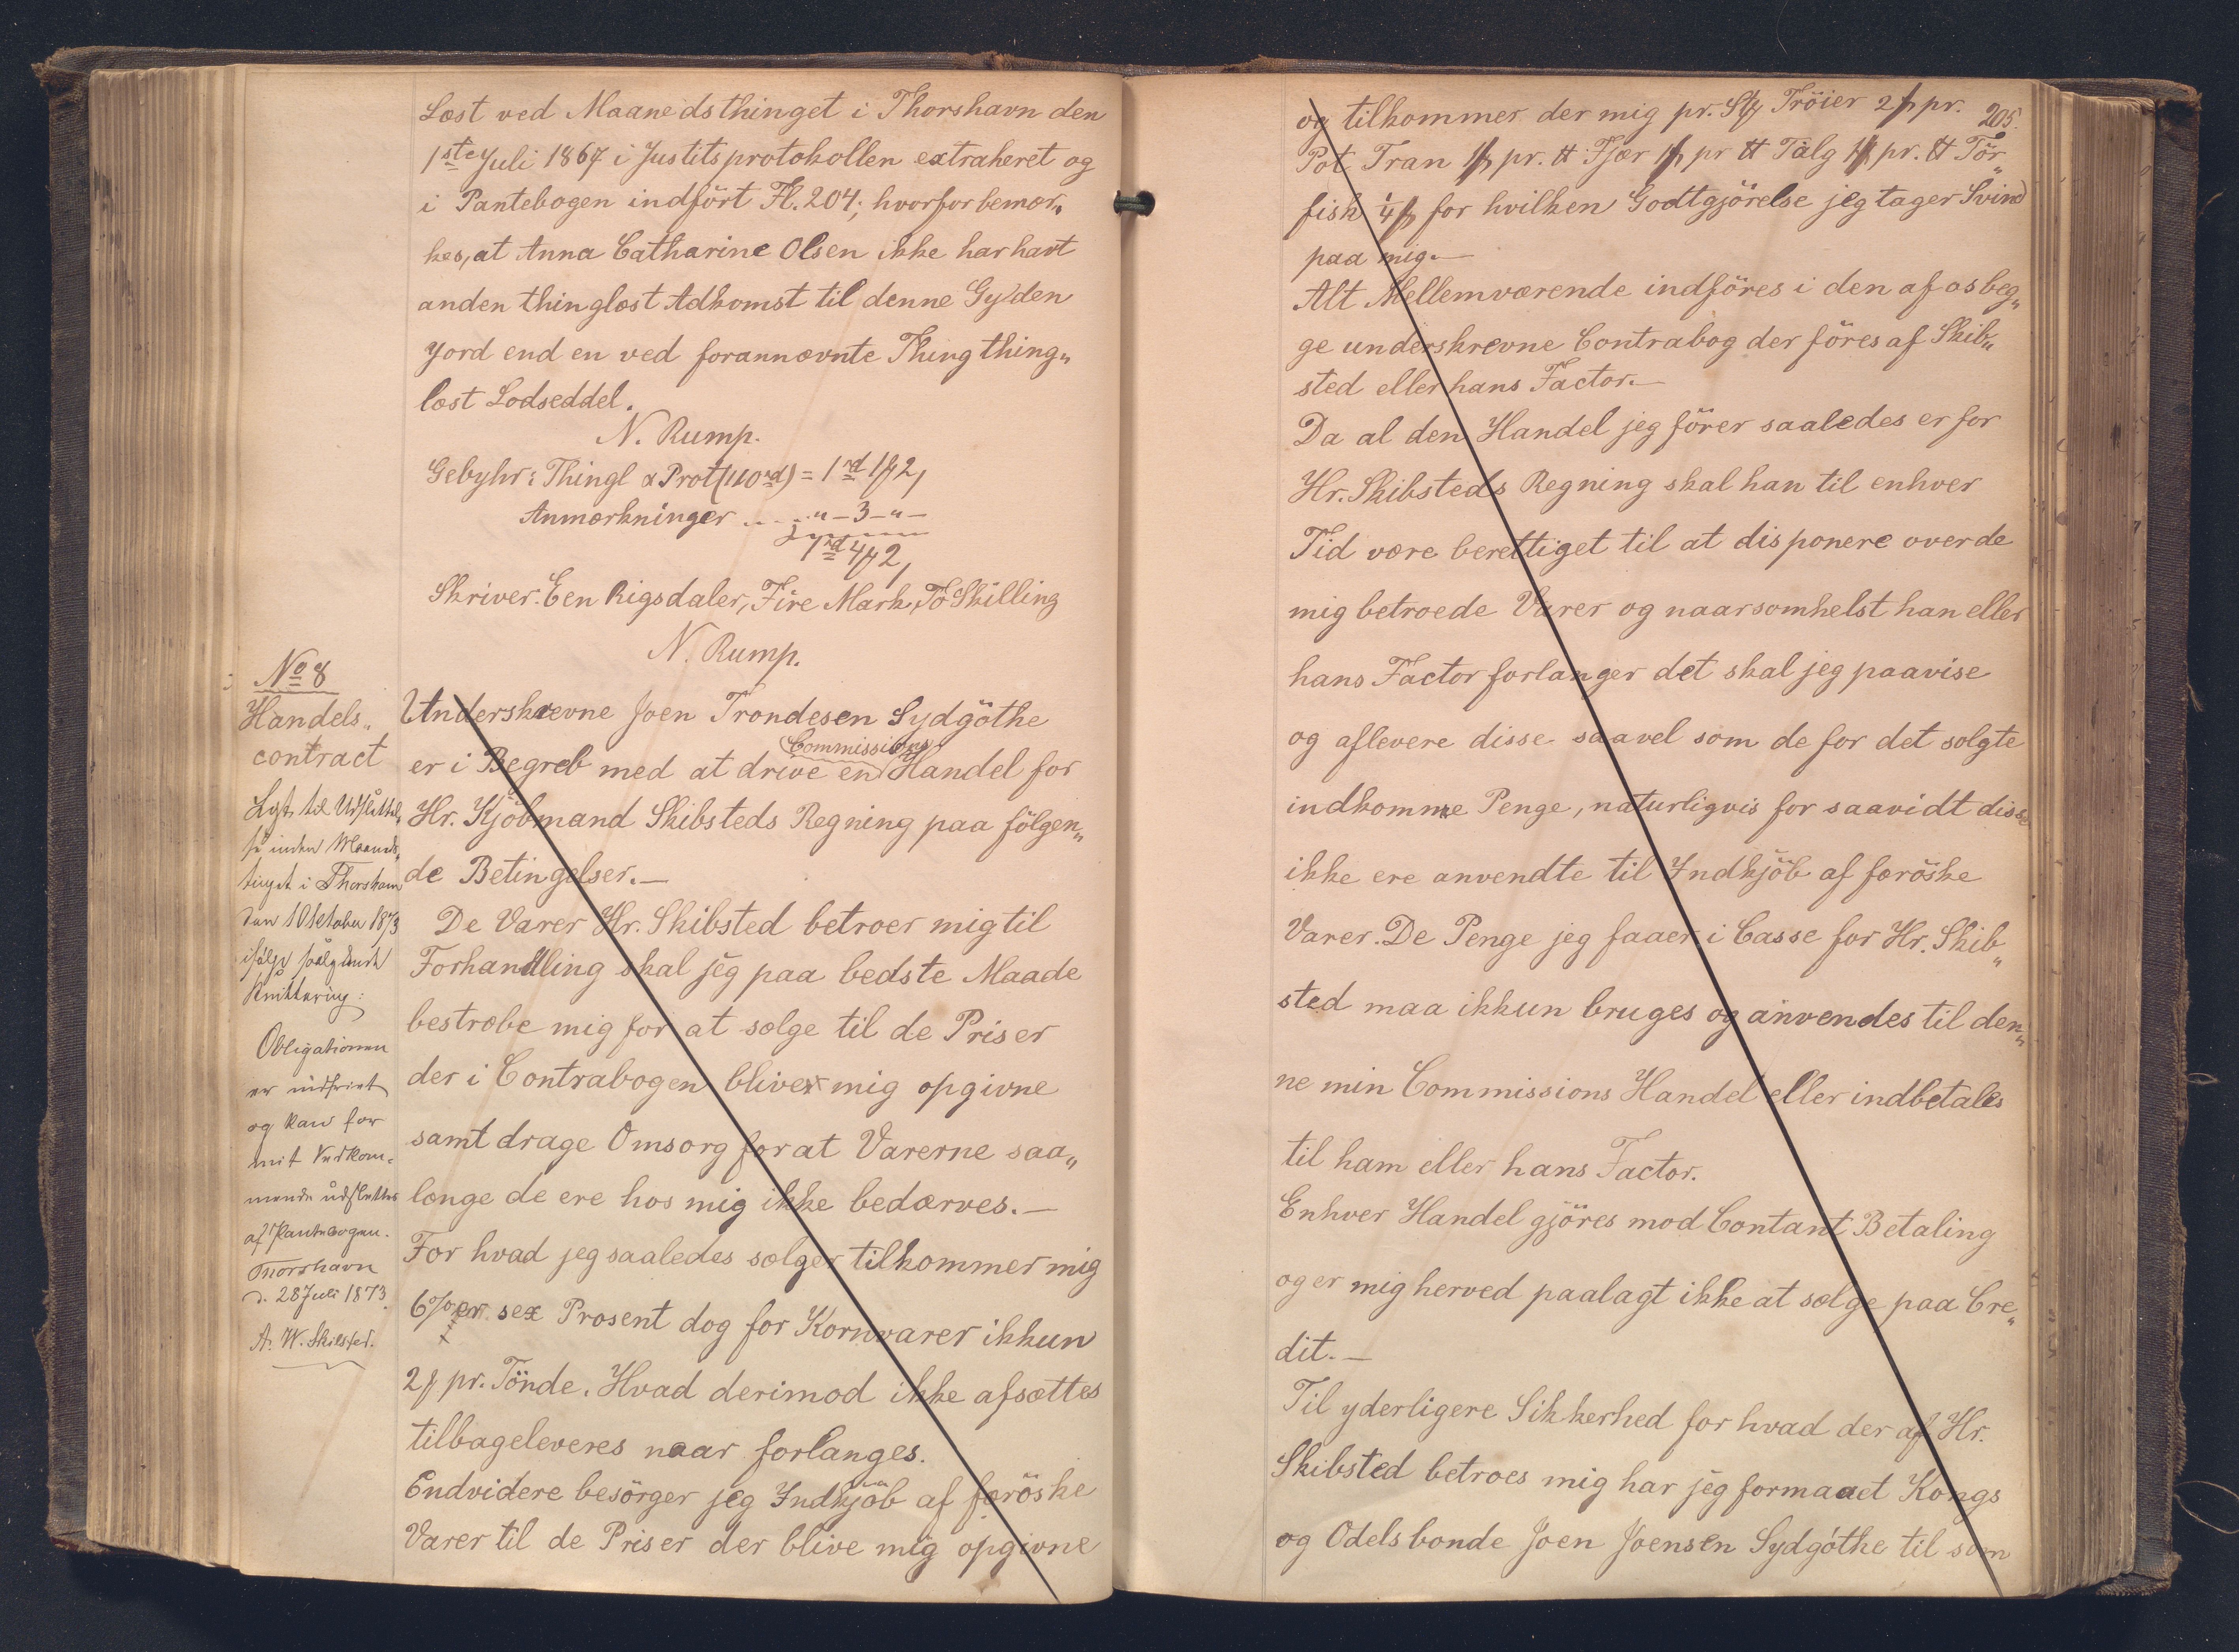 Læst ved Maanedsthinget i Thorshavn den
1ste Juli 1867 i Justitsprotokollen extraheret og
i Pantebogen indført Fl. 204; hvorfor bemær„
kes, at Anna Catharine Olsen ikke har havt
anden thinglæst Adkomst til denne Gylden
Jord end en ved forannævnte Thing thing„
læst Lodseddel.
N. Rump.
Gebyhr: Thingl & Prot (110 rd) = 1rd 1ß 2,
Anmærkninger .... „ – 3 – „ –
1rd 4ß 2,
Skriver. Een Rigsdaler, Fire Mark, To Skilling
N. Rump.
No 8
Handels„
contract
Lyst til Udslettel„
se inden Maaneds„
tinget i Thorshavn
den 1 October 1873
ifølge saalydende
Kvittering:
Obligationen
er indfriet
og kan for
mit Vedkom=
mende udslettes
af Pantebogen.
Thorshavn
d. 28 Juli 1873.
A. W. Skibsted.
Underskrevne Joen Trondesen Sydgöthe
er i Begreb med at drive en Commissions Handel for
Hr. Kjöbmand Skibsteds Regning paa fölgen„
de Betingelser.—
De Varer Hr. Skibsted betroer mig til
Forhandling skal jeg paa bedste Maade
bestræbe mig for at sælge til de Priser
der i Contrabogen bliver mig opgivne
samt drage Omsorg for at Varerne saa„
længe de ere hos mig ikke bedærves.—
For hvad jeg saaledes sælger tilkommer mig
6% er sex Prosent dog for Kornvarer ikkun
2ß pr. Tönde. Hvad derimod ikke afsættes
tilbageleveres naar forlanges.
Endvidere besörger jeg Indkjöb af færöske
Varer til de Priser der blive mig opgivne
205.
og tilkommer der mig pr. Stk Tröier 2ß pr.
Pot Tran 1ß pr. ℔ Fjær 1ß pr ℔ Talg 1ß pr. ℔ Tör„
fisk 1/4ß for hvilken Godtgjörelse jeg tager Svind
paa mig.—
Alt Mellemværende indföres i den af os beg„
ge underskrevne Contrabog der föres af Skib„
sted eller hans Factor.—
Da al den Handel jeg förer saaledes er for
Hr. Skibsteds Regning skal han til enhver
Tid være berettiget til at disponere over de
mig betroede Varer og naarsomhelst han eller
hans Factor forlanger det skal jeg paavise
og aflevere disse saavel som de for det solgte
indkomne Penge, naturligvis for saavidt disse
ikke ere anvendte til Indkjöb af færöske
Varer. De Penge jeg faaer i Casse for Hr. Skib„
sted maa ikkun bruges og anvendes til den„
ne min Commissions Handel eller indbetales
til ham eller hans Factor.
Enhver Handel gjöres mod Contant Betaling
og er mig herved paalagt ikke at sælge paa Cre„
dit.—
Til yderligere Sikkerhed for hvad der af Hr.
Skibsted betroes mig har jeg formaaet Kongs
og Odelsbonde Joen Joensen Sydgöthe til som